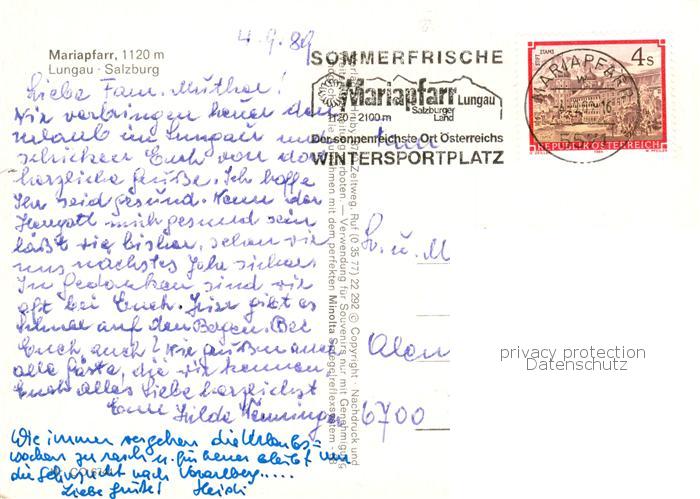 4.9.89
Mariapfarr, 1120 m
Lungau · Salzburg
SOMMERFRISCHE
Mariapfarr Lungau
Salzburger
1120–2100m Land
Der sonnenreichste Ort Österreichs
WINTERSPORTPLATZ
4s
STIFT STAMS
MARIAPFARR
REPUBLIK ÖSTERREICH
Liebe Fam.
Wir verbringen heuer den
Urlaub im Lungau und
schicken Euch von dort
herzliche Grüße. Ich hoffe
Ihr seid gesund. Wenn der
Herrgott mich gesund sein
läßt wie bisher, sehen wir
uns nächstes Jahr sicher.
In Gedanken sind wir
oft bei Euch. Hier gibt es
Schnee auf den Bergen. Bei
Euch auch? Wir grüßen auch
alle Gäste, die wir kennen,
Euch alles Liebe herzlichst
Eure Hilde
Wie immer vergehen die Urlaubs=
wochen zu rasch u. für heuer bleibt nur
die Sehnsucht nach Vorarlberg.....
Liebe Grüße! Heidi
Zeltweg, Ruf (0 35 77) 22 292 © Copyright · Nachdruck und
verboten. — Verwendung für Souvenirs nur mit Genehmigung
mit dem perfekten Minolta Spiegelreflexsystem
Alem
6700
privacy protection
Datenschutz